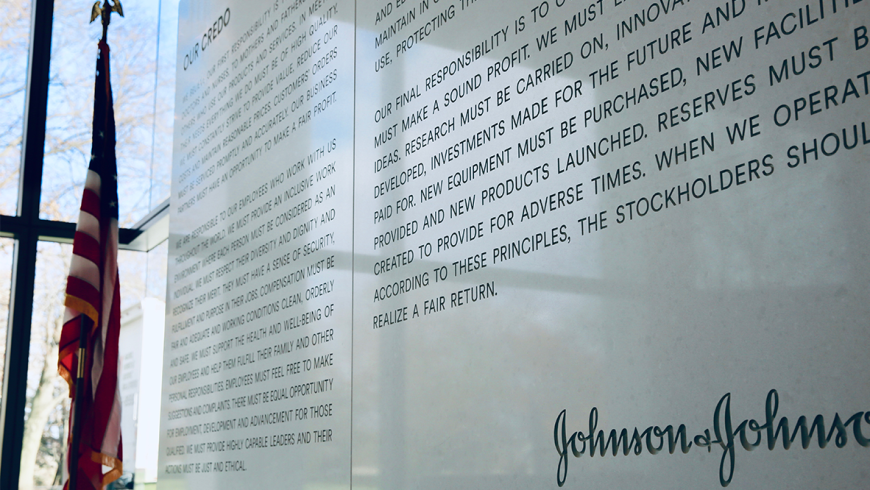 OUR CREDO
OUR FIRST RESPONSIBILITY IS
DOCTORS AND NURSES, TO MOTHERS AND FATHERS
OTHERS WHO USE OUR PRODUCTS AND SERVICES. IN
THEIR NEEDS EVERYTHING WE DO MUST BE OF HIGH QUALITY.
WE MUST CONSTANTLY STRIVE TO PROVIDE VALUE, REDUCE OUR
COSTS AND MAINTAIN REASONABLE PRICES. CUSTOMERS' ORDERS
MUST BE SERVICED PROMPTLY AND ACCURATELY. OUR BUSINESS
PARTNERS MUST HAVE AN OPPORTUNITY TO MAKE A FAIR PROFIT.
WE ARE RESPONSIBLE TO OUR EMPLOYEES WHO WORK WITH US
THROUGHOUT THE WORLD. WE MUST PROVIDE AN INCLUSIVE WORK
ENVIRONMENT WHERE EACH PERSON MUST BE CONSIDERED AS AN
INDIVIDUAL. WE MUST RESPECT THEIR DIVERSITY AND DIGNITY AND
RECOGNIZE THEIR MERIT. THEY MUST HAVE A SENSE OF SECURITY,
FULFILLMENT AND PURPOSE IN THEIR JOBS. COMPENSATION MUST BE
FAIR AND ADEQUATE AND WORKING CONDITIONS CLEAN, ORDERLY
AND SAFE. WE MUST SUPPORT THE HEALTH AND WELL-BEING OF
OUR EMPLOYEES AND HELP THEM FULFILL THEIR FAMILY AND OTHER
PERSONAL RESPONSIBILITIES. EMPLOYEES MUST FEEL FREE TO MAKE
SUGGESTIONS AND COMPLAINTS. THERE MUST BE EQUAL OPPORTUNITY
FOR EMPLOYMENT, DEVELOPMENT AND ADVANCEMENT FOR THOSE
QUALIFIED. WE MUST PROVIDE HIGHLY CAPABLE LEADERS AND THEIR
ACTIONS MUST BE JUST AND ETHICAL.
AND
MAINTAIN IN
USE, PROTECTING
OUR FINAL RESPONSIBILITY IS TO
MUST MAKE A SOUND PROFIT. WE MUST
IDEAS. RESEARCH MUST BE CARRIED ON, INNOVA
DEVELOPED, INVESTMENTS MADE FOR THE FUTURE AND
PAID FOR. NEW EQUIPMENT MUST BE PURCHASED, NEW FACILITIE
PROVIDED AND NEW PRODUCTS LAUNCHED. RESERVES MUST B
CREATED TO PROVIDE FOR ADVERSE TIMES. WHEN WE OPERAT
ACCORDING TO THESE PRINCIPLES, THE STOCKHOLDERS SHOUL
REALIZE A FAIR RETURN.
Johnson & Johnso